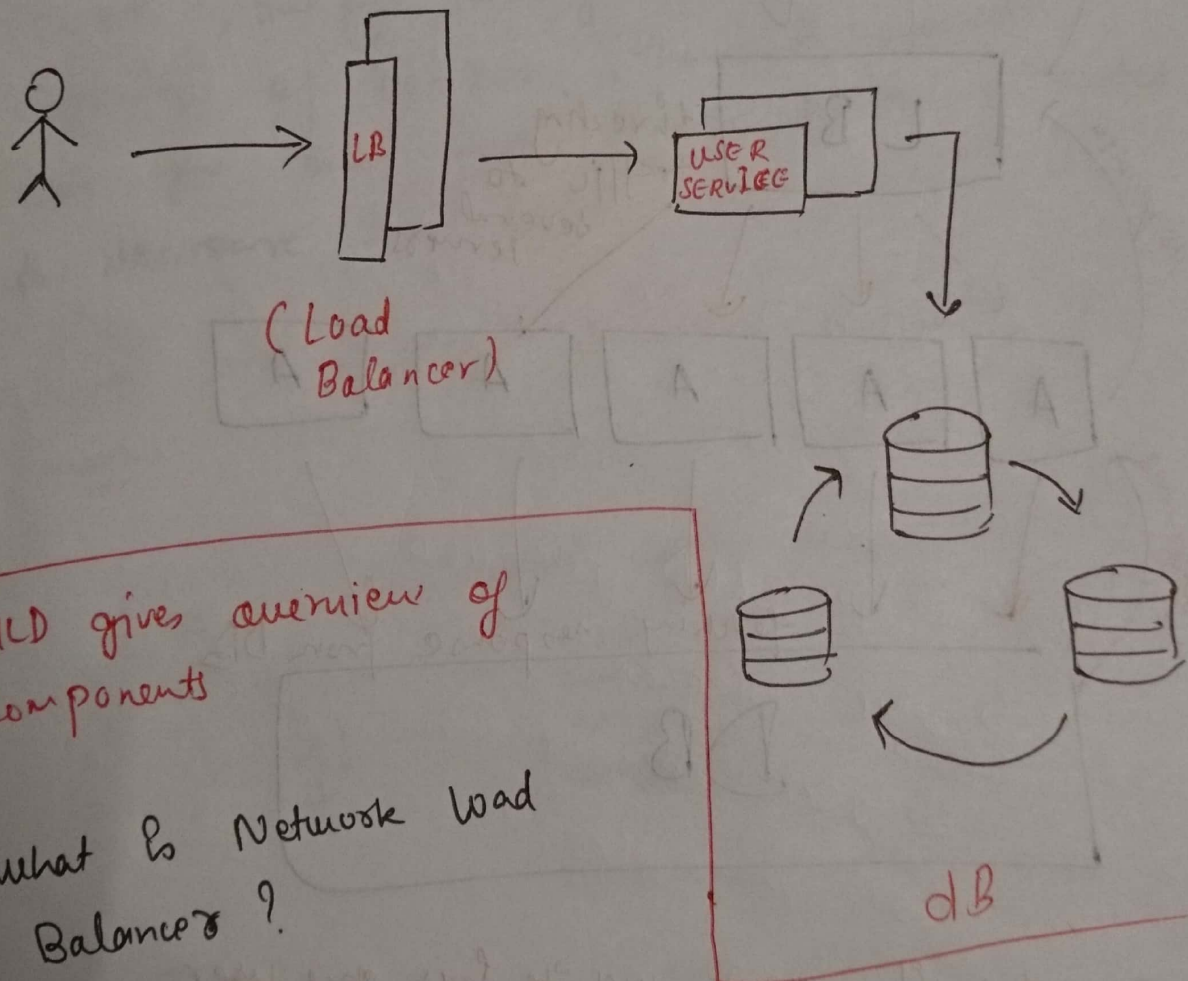 LB
USER
SERVICE
(Load
Balancer)
LD gives overview of
omponents
what is Network load
Balancer ?
dB